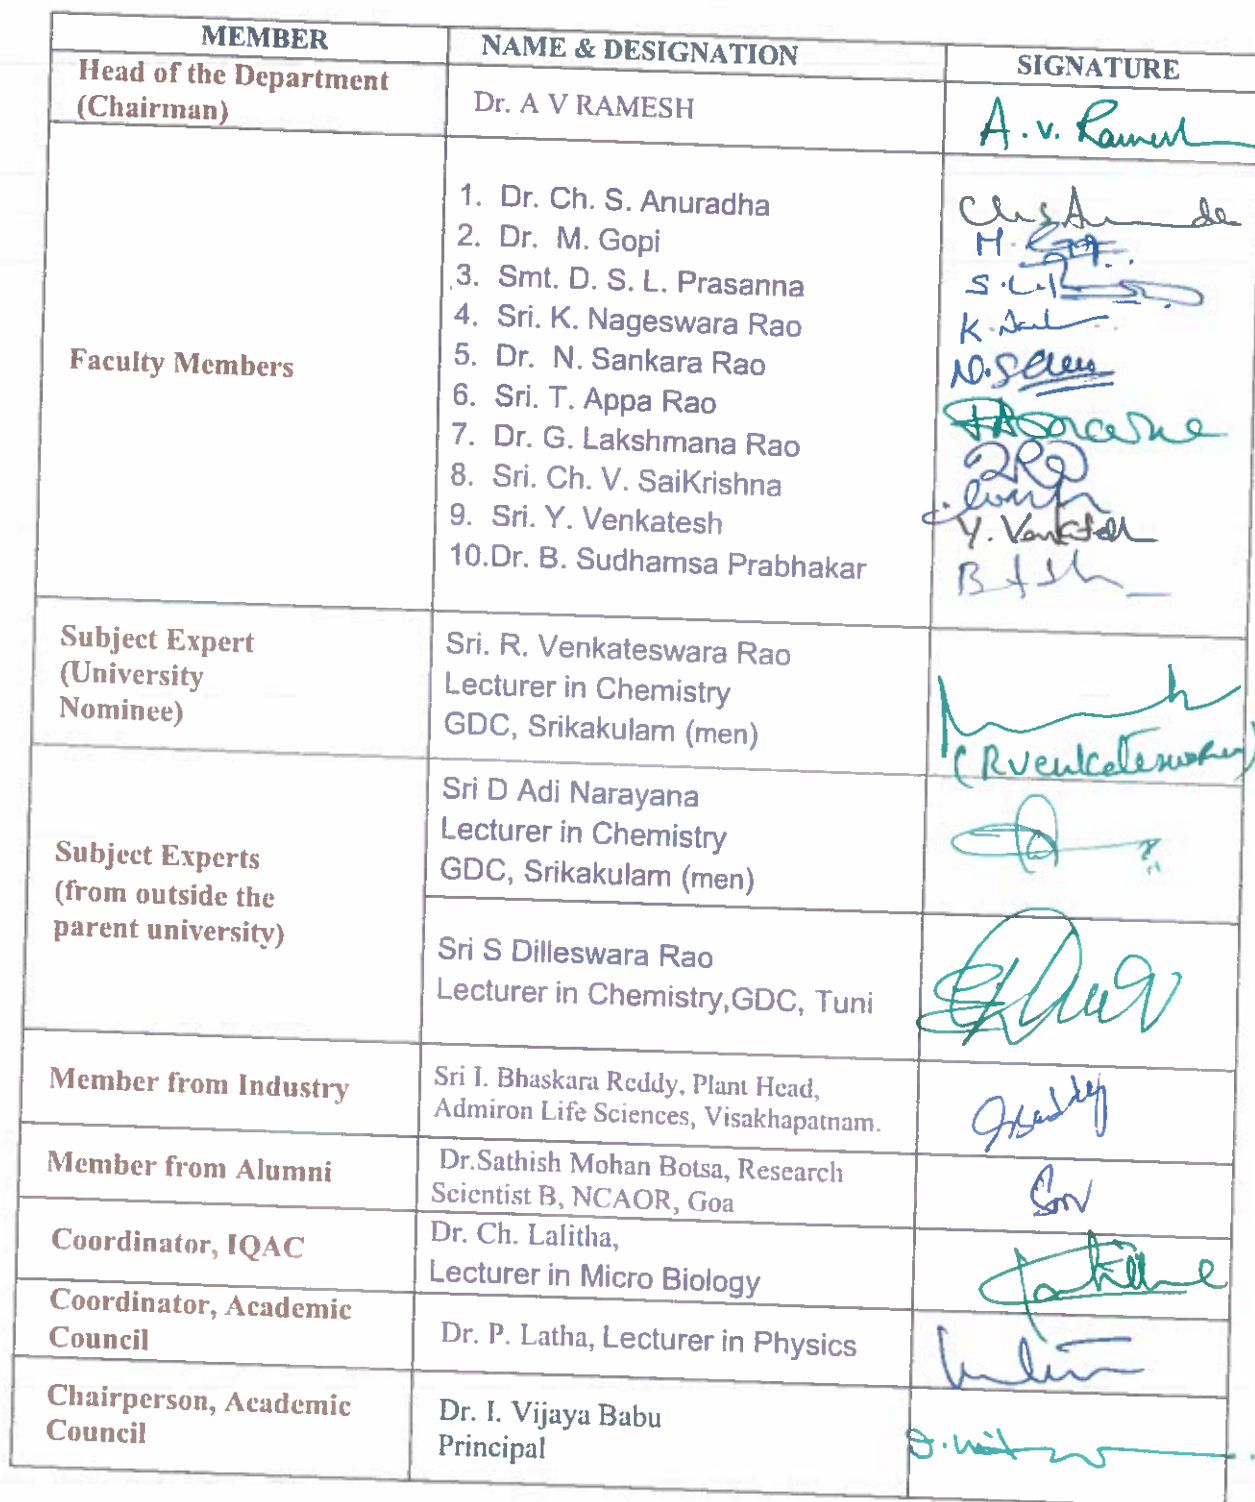 MEMBER NAME & DESIGNATION SIGNATURE
Head of the Department
(Chairman)
Dr. A V RAMESH
A. v. Ramesh
Faculty Members
1. Dr. Ch. S. Anuradha
2. Dr. M. Gopi
3. Smt. D. S. L. Prasanna
4. Sri. K. Nageswara Rao
5. Dr. N. Sankara Rao
6. Sri. T. Appa Rao
7. Dr. G. Lakshmana Rao
8. Sri. Ch. V. SaiKrishna
9. Sri. Y. Venkatesh
10.Dr. B. Sudhamsa Prabhakar
Y. Venkatesh
Subject Expert
(University
Nominee)
Sri. R. Venkateswara Rao
Lecturer in Chemistry
GDC, Srikakulam (men)
Subject Experts
(from outside the
parent university)
Sri D Adi Narayana
Lecturer in Chemistry
GDC, Srikakulam (men)
Sri S Dilleswara Rao
Lecturer in Chemistry,GDC, Tuni
Member from Industry
Sri I. Bhaskara Reddy, Plant Head,
Admiron Life Sciences, Visakhapatnam.
Member from Alumni
Dr.Sathish Mohan Botsa, Research
Scientist B, NCAOR, Goa
Coordinator, IQAC
Dr. Ch. Lalitha,
Lecturer in Micro Biology
Coordinator, Academic
Council
Dr. P. Latha, Lecturer in Physics
Chairperson, Academic
Council
Dr. I. Vijaya Babu
Principal